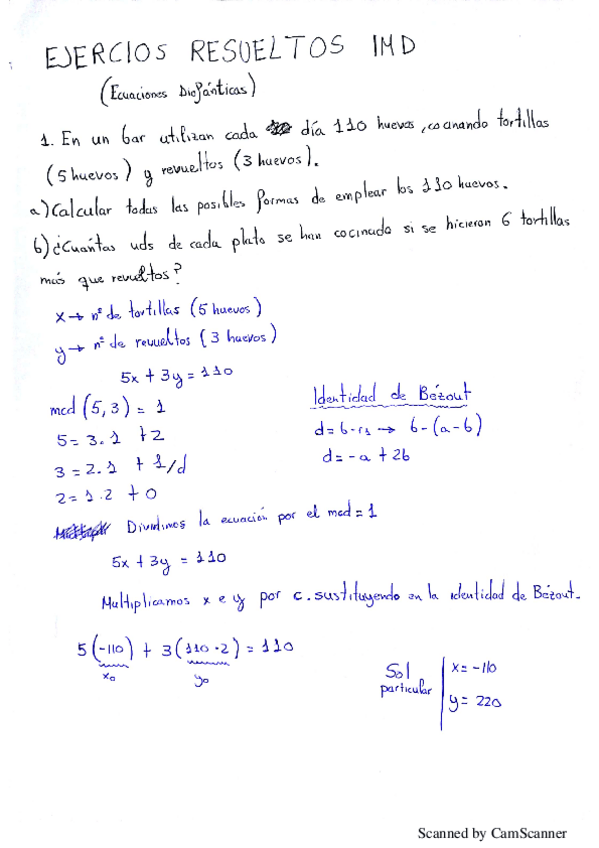 EJERCIOS RESUELTOS IMD
(Ecuaciones Diofánticas)
1. En un bar utilizan cada día 110 huevos, cocinando tortillas
(5 huevos) y revueltos (3 huevos).
a) Calcular todas las posibles formas de emplear los 110 huevos.
b) ¿Cuántas uds de cada plato se han cocinado si se hicieron 6 tortillas
más que revueltos?
x → nº de tortillas (5 huevos)
y → nº de revueltos (3 huevos)
5x + 3y = 110
mcd (5,3) = 1
5 = 3.1 + 2
3 = 2.1 + 1/d
2 = 1.2 + 0
Identidad de Bézout
d = b - r1 → b - (a - b)
d = -a + 2b
Dividimos la ecuación por el mcd = 1
5x + 3y = 110
Multiplicamos x e y por c. sustituyendo en la identidad de Bézout.
5(-110) + 3(110·2) = 110
x0 y0
Sol particular
x = -110
y = 220
Scanned by CamScanner